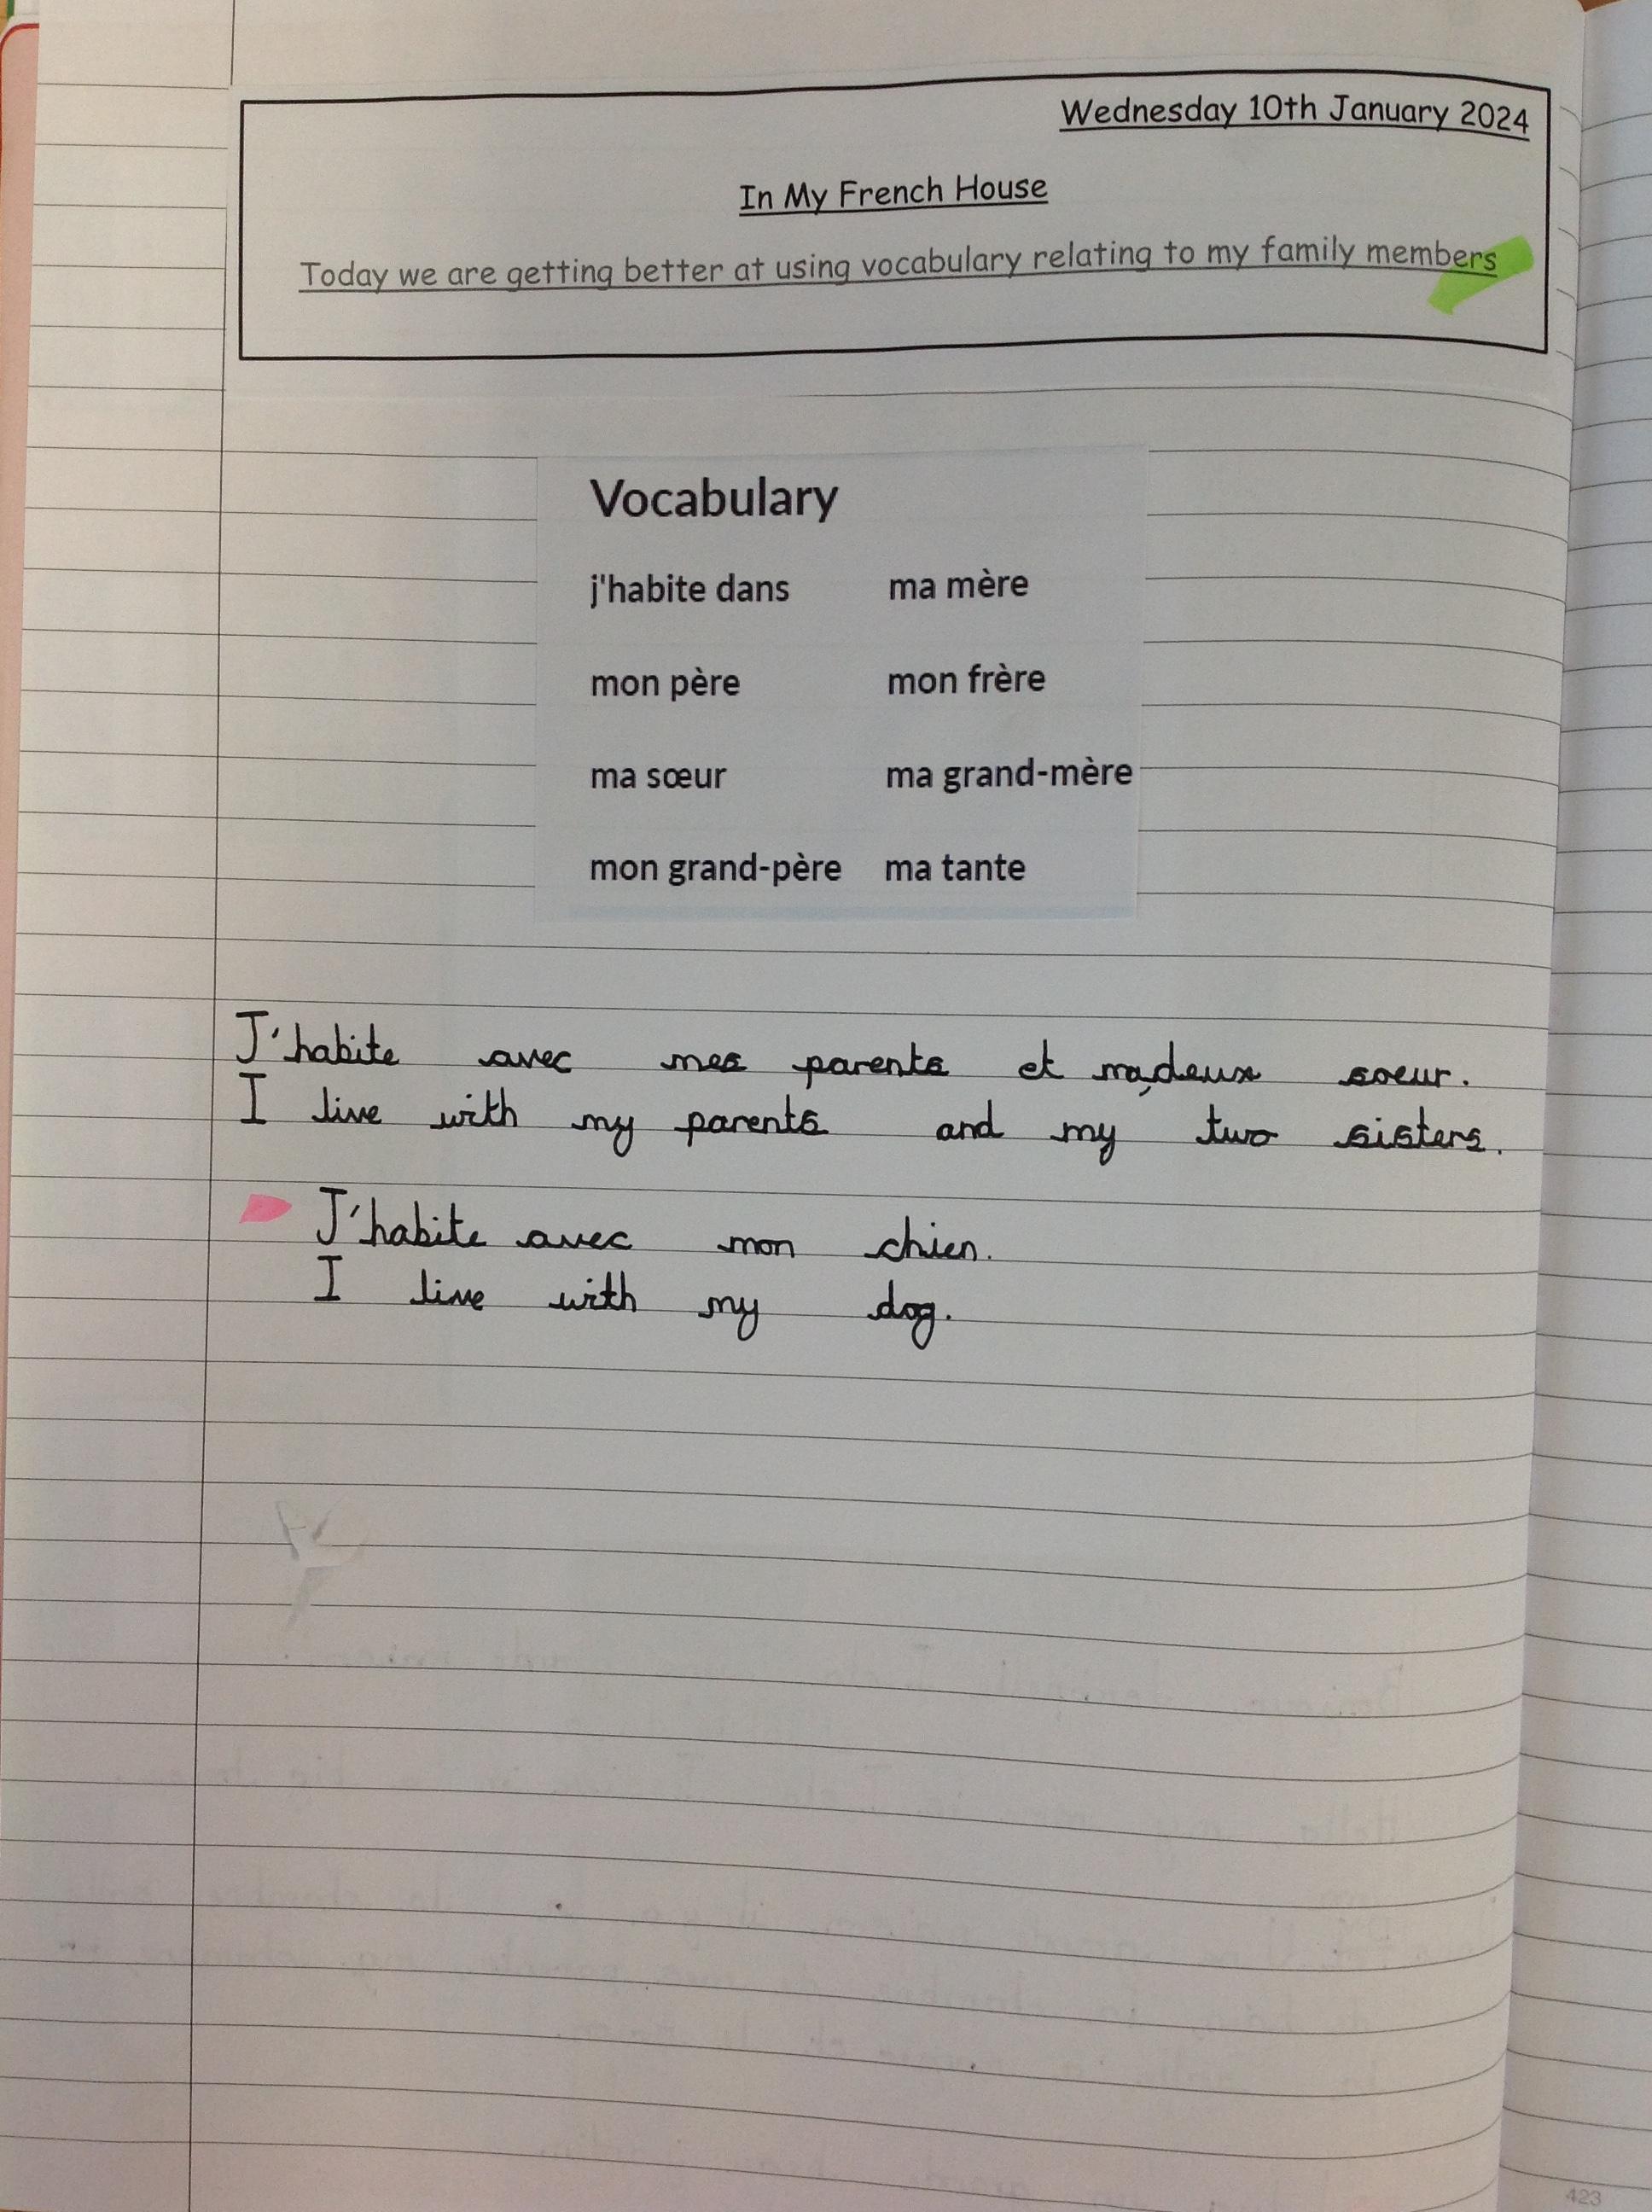 Wednesday 10th January 2024
In My French House
Today we are getting better at using vocabulary relating to my family members
Vocabulary
j'habite dans ma mère
mon père mon frère
ma sœur ma grand-mère
mon grand-père ma tante
J'habite avec mes parents et ma,deux soeur.
I live with my parents and my two sisters.
J'habite avec mon chien.
I live with my dog.
423